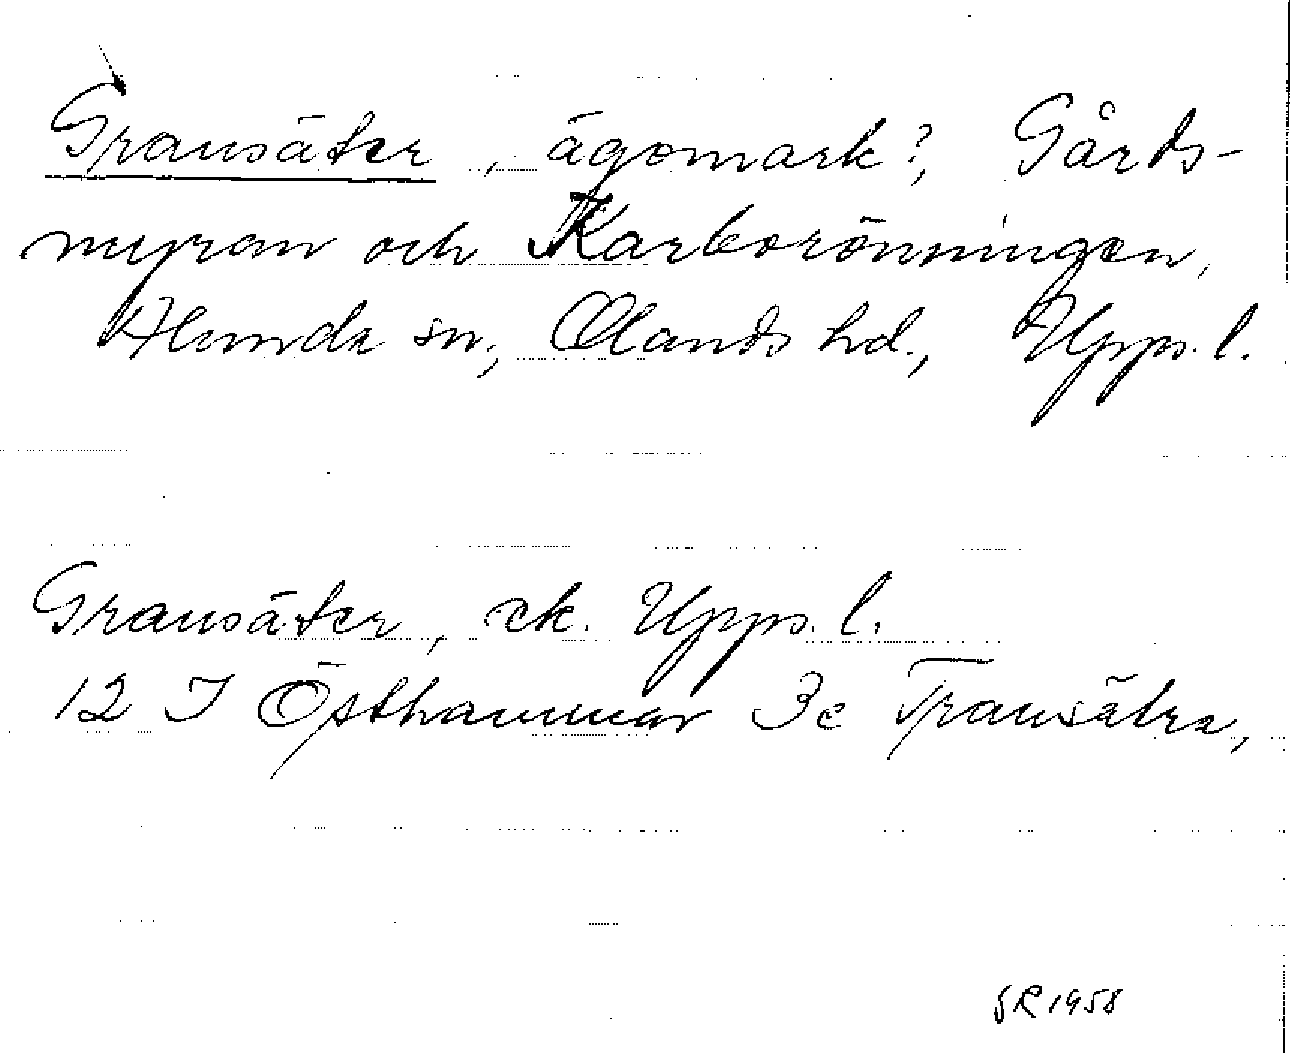 Gransäter, ägomark?, Gårds-
myran och Karborönningen,
Alunda sn, Olands hd., Upps. l.
Gransäter, ek. Upps. l.
12 I Östhammar 3e Transätra,
GR 1958